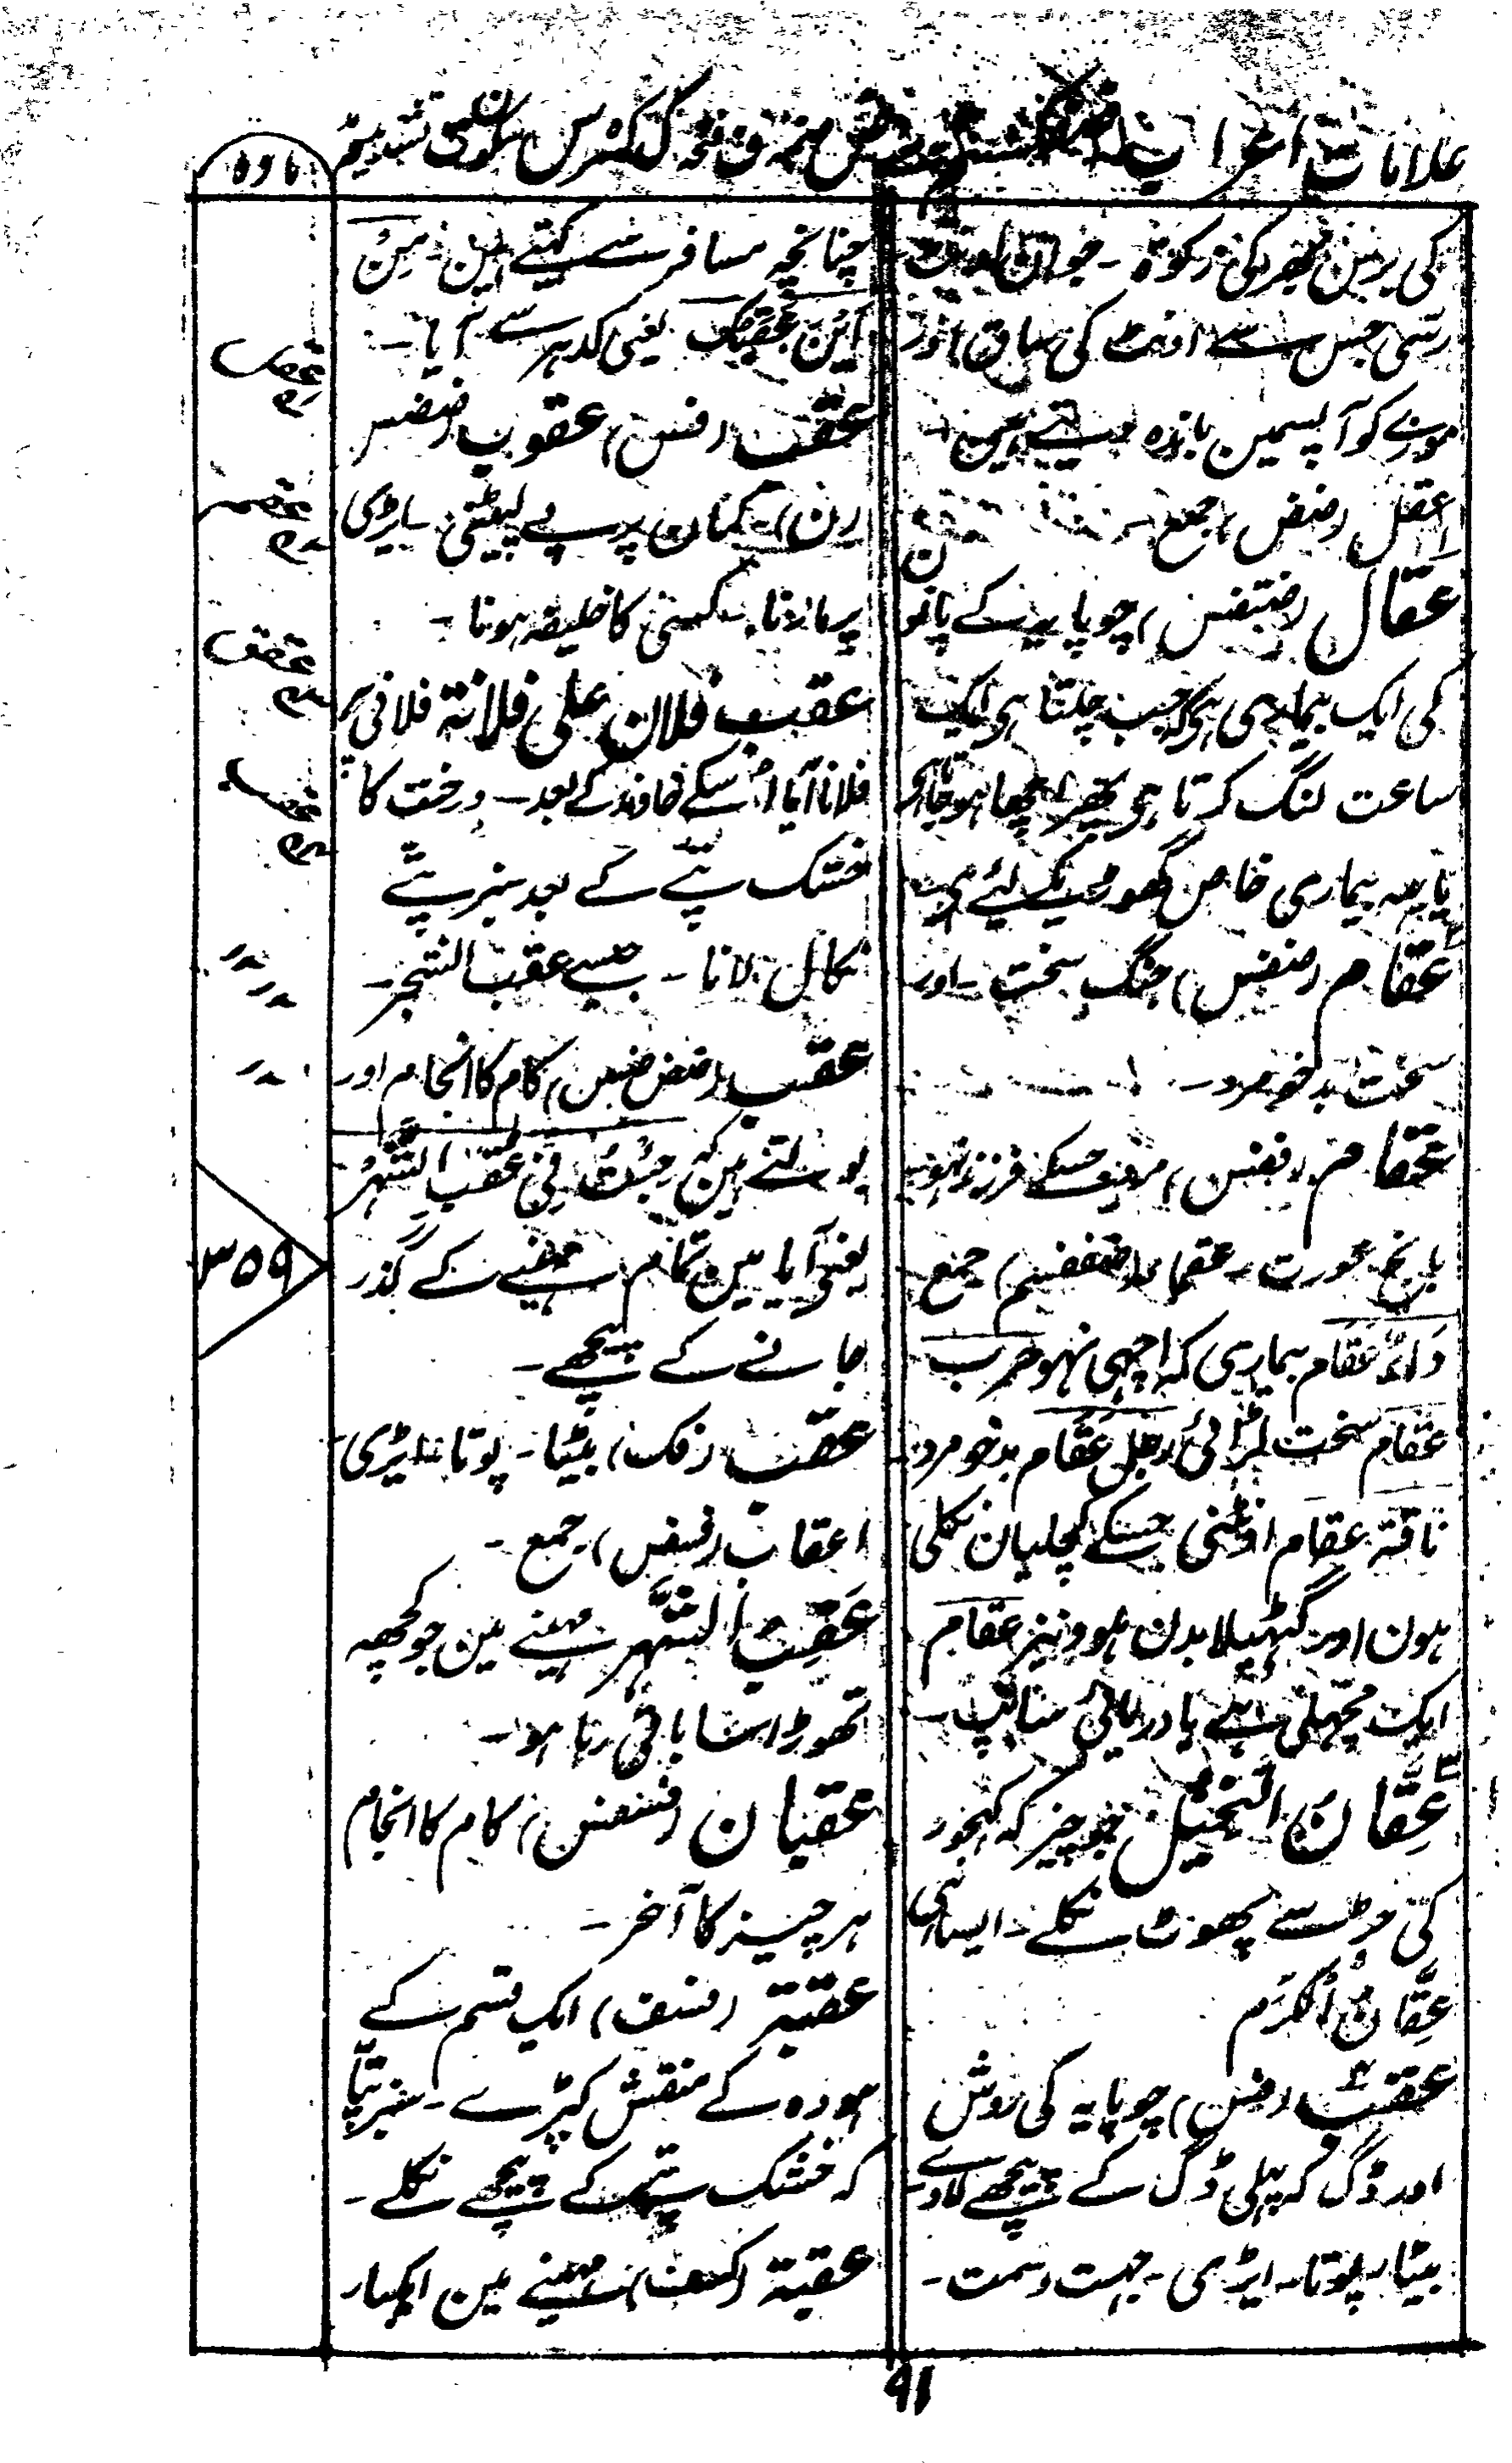 علامات اعراب ض ضمہ ف فتحہ ک کسرہ س سکون ت تشدید
مادہ
کی برس بھر کی زکوة - جوان اونٹ
رسی جس سے اونٹ کی ساق اور
موزے کو آپسمین باندہ دیتے ہین -
عقل (ضض) جمع -
عقال (ضتفس) چوپایہ کے پانو
کی ایک بیماری ہی کہ جب چلتا ہی ایک
ساعت لنگ کرتا ہی پھر اچھا ہو جاتا ہی
یا یہہ بیماری خاص گھوڑیکے لئے ہی
عقام (ضفس) جنگ سخت - اور
سخت بدخو مرد -
عقام (ففس) مرد جسکے فرزند نہو
بانجھ عورت - عقماء جمع
دَاءٌ عَقَام بیماری کہ اچہی نہو حرب
عقام سخت لڑائی رجل عَقَام بدخو مرد
ناقة عقام اونٹنی جسکے کچلیان نکلی
ہون اور گٹھیلا بدن ہو و نیز عقام
ایک مچھلی ہے یا دریائی سانپ -
عِقَّانُ النَّخِیْل جو چیز کہ کھجور
کی جڑ سے پھوٹ نکلے - ایسا ہی
عِقَّانُ الْکَرَم
عقب (فس) چوپایہ کی روش
اور ڈگ کہ پہلی ڈگ کے پیچھے
بیٹا - پوتا - ایڑی - جہت و سمت -
چنانچہ مسافر سے کہتے ہین مِنْ
اَیْنَ عَقِبُکَ یعنی کدہر سے آیا -
عقب (فس) عقوب (ضضس)
(ن) کمان پر پے لپیٹنی - ایڑی
پر مارنا - کسی کا خلیفہ ہونا -
عقب فلان علی فلانة فلانی پر
فلانا آیا اسکے خاوند کے بعد - درخت کا
خشک پتے کے بعد سبز پتے
نکال لانا - جیسے عقب الشجر -
عقب (ضض ضس) کام کا انجام اور
بولتے ہین کہ جِئْتُ فِیْ عُقْبِ الشَّہْرِ
یعنی آیا مین تمام مہینے کے گذر
جانے کے پیچھے -
عقب (فک) بیٹا - پوتا - ایڑی
اعقاب (فسفس) جمع -
عَقِبُ الشَّہْر مہینے مین جو کچھہ
تھوڑا سا باقی رہا ہو -
عقبان کام کا انجام
ہر چیز کا آخر -
عقبة (فسف) ایک قسم کے
ہودہ کے منقش کپڑے - سبز پتّا
کہ خشک پتے کے پیچھے نکلے -
عقبة (کسف) مہینے مین ایکبار
۳۵۹
91